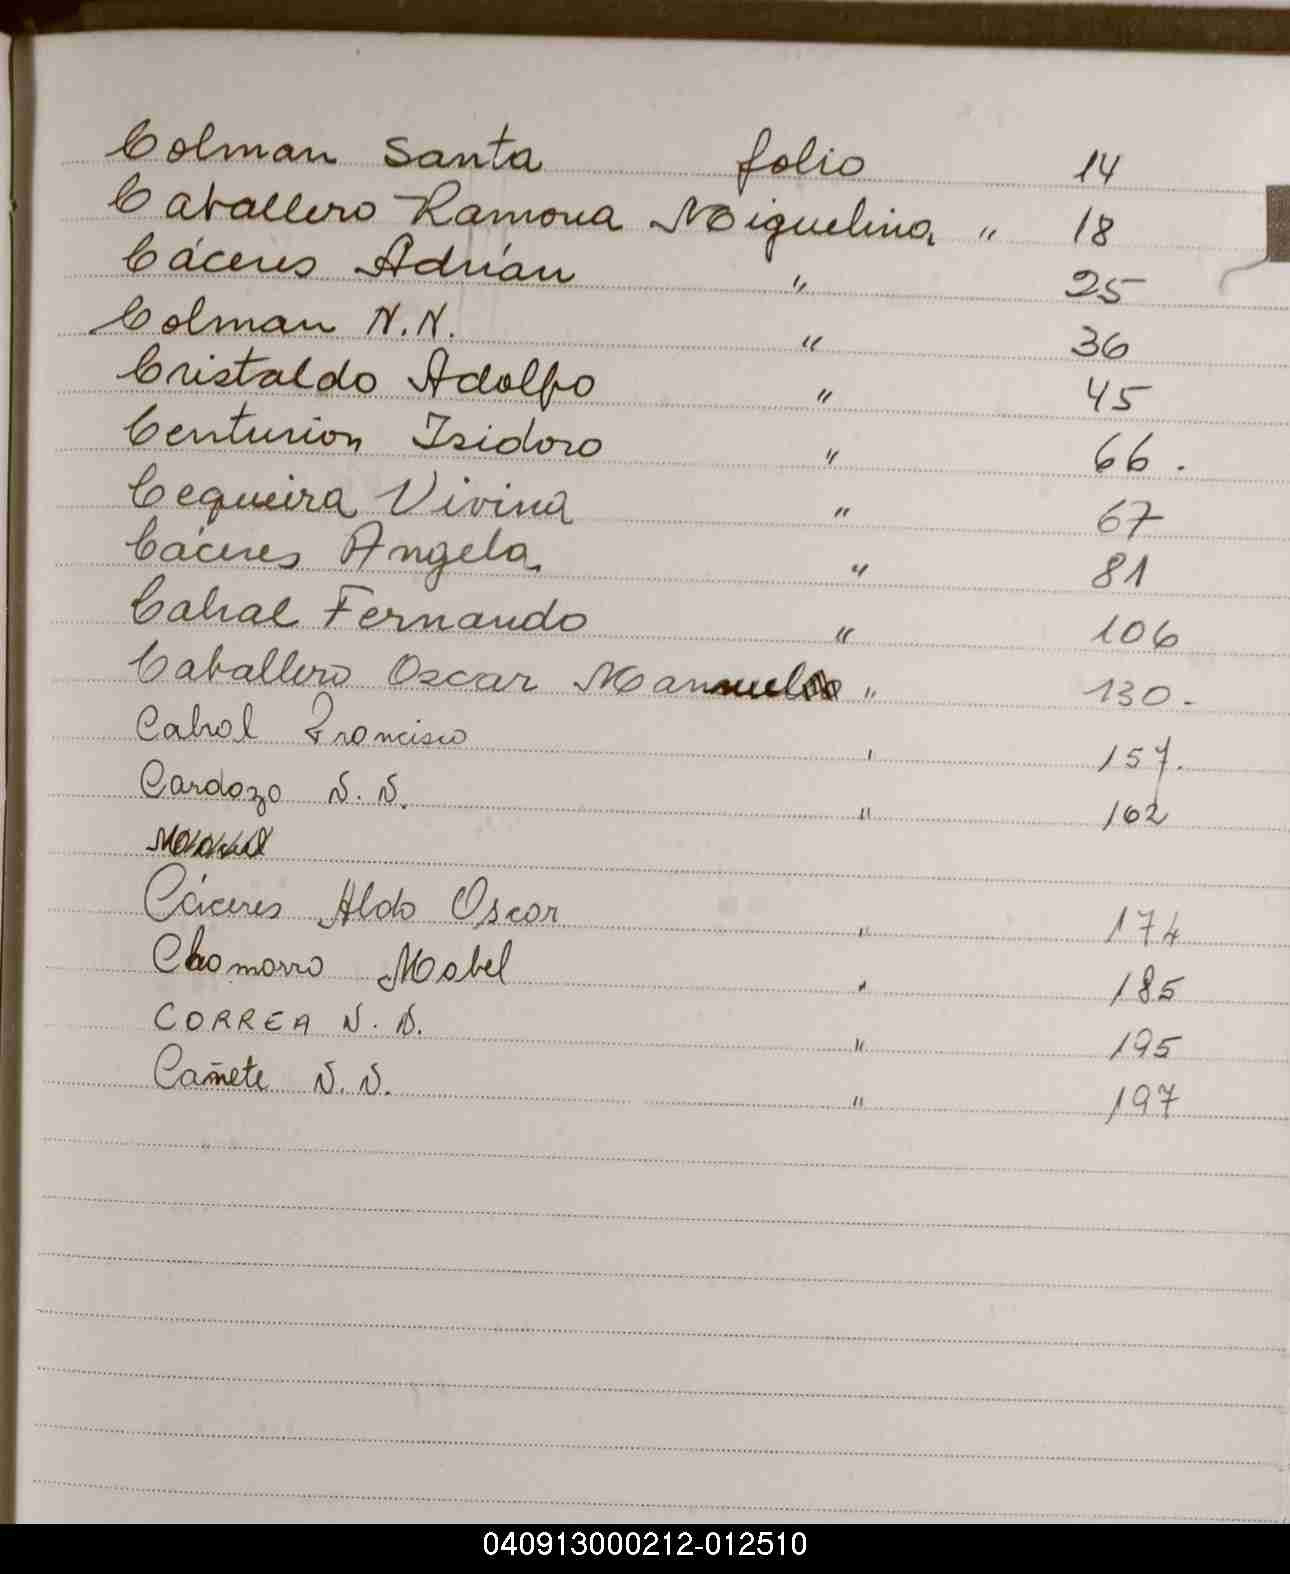 Colman Santa folio 14
Caballero Ramona Miguelina " 18
Cáceres Adrián " 25
Colman N.N. " 36
Cristaldo Adolfo " 45
Centurion Isidoro " 66.
Cequeira Vivina " 67
Cáceres Angela " 81
Cabral Fernando " 106
Caballero Oscar Manuel " 130.
Cabral Francisco " 157.
Cardozo N.N. " 162
Cáceres Aldo Oscar " 174
Chamorro Mabel " 185
CORREA N.N. " 195
Cañete N.N. " 197
040913000212-012510